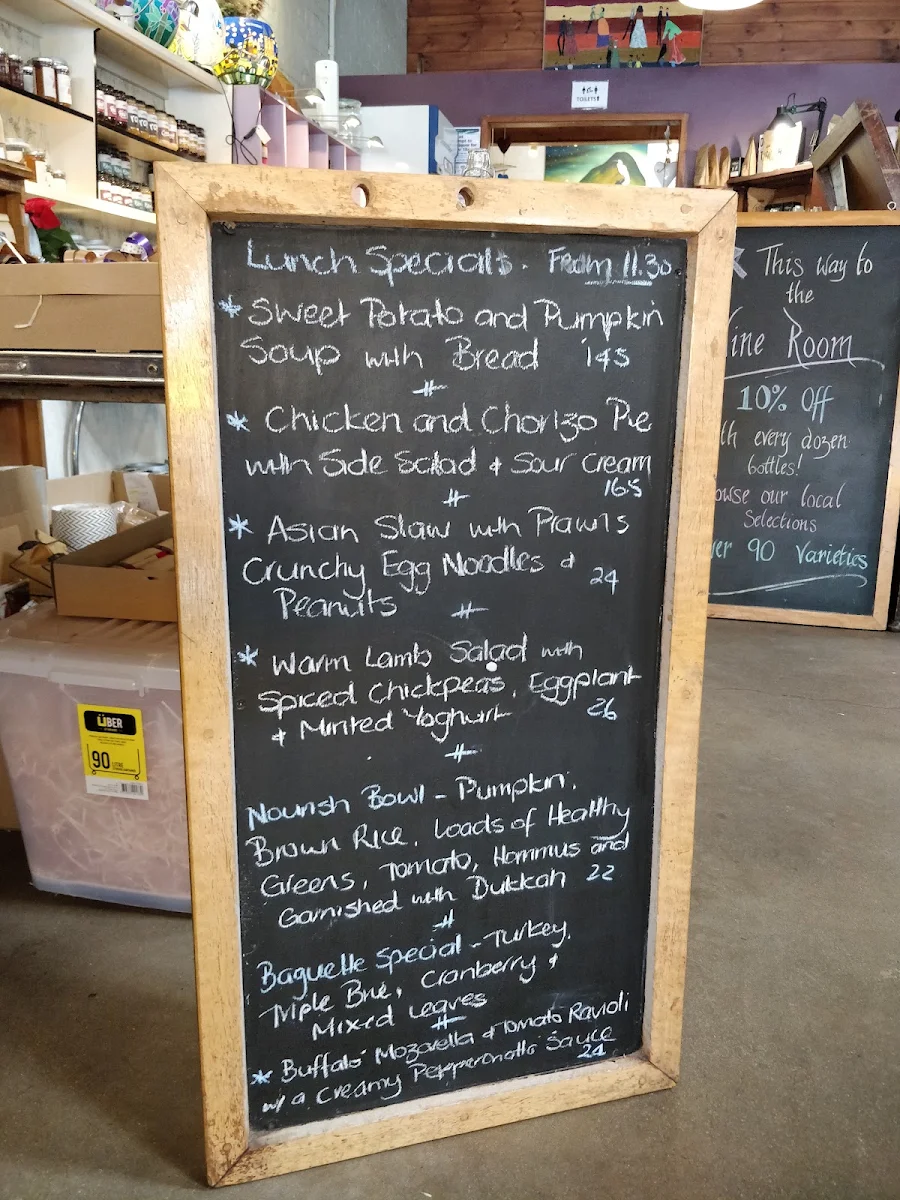 Lunch Specials. From 11.30
* Sweet Potato and Pumpkin
Soup with Bread 14.5
#
* Chicken and Chorizo Pie
with Side Salad & Sour Cream
16.5
#
* Asian Slaw with Prawns
Crunchy Egg Noodles &
Peanuts 24
#
* Warm Lamb Salad with
Spiced Chickpeas, Eggplant
& Minted Yoghurt 26
#
Nourish Bowl - Pumpkin,
Brown Rice, Loads of Healthy
Greens, Tomato, Hommus and
Garnished with Dukkah 22
#
Baguette Special - Turkey,
Triple Brie, Cranberry &
Mixed Leaves
#
* Buffalo Mozarella & Tomato Ravioli
w/ a Creamy Pepperonatta Sauce
24
This way to
the
ine Room
10% Off
th every dozen
bottles!
owse our local
Selections
er 90 Varieties
TOILETS
ÜBER
90 LITRE